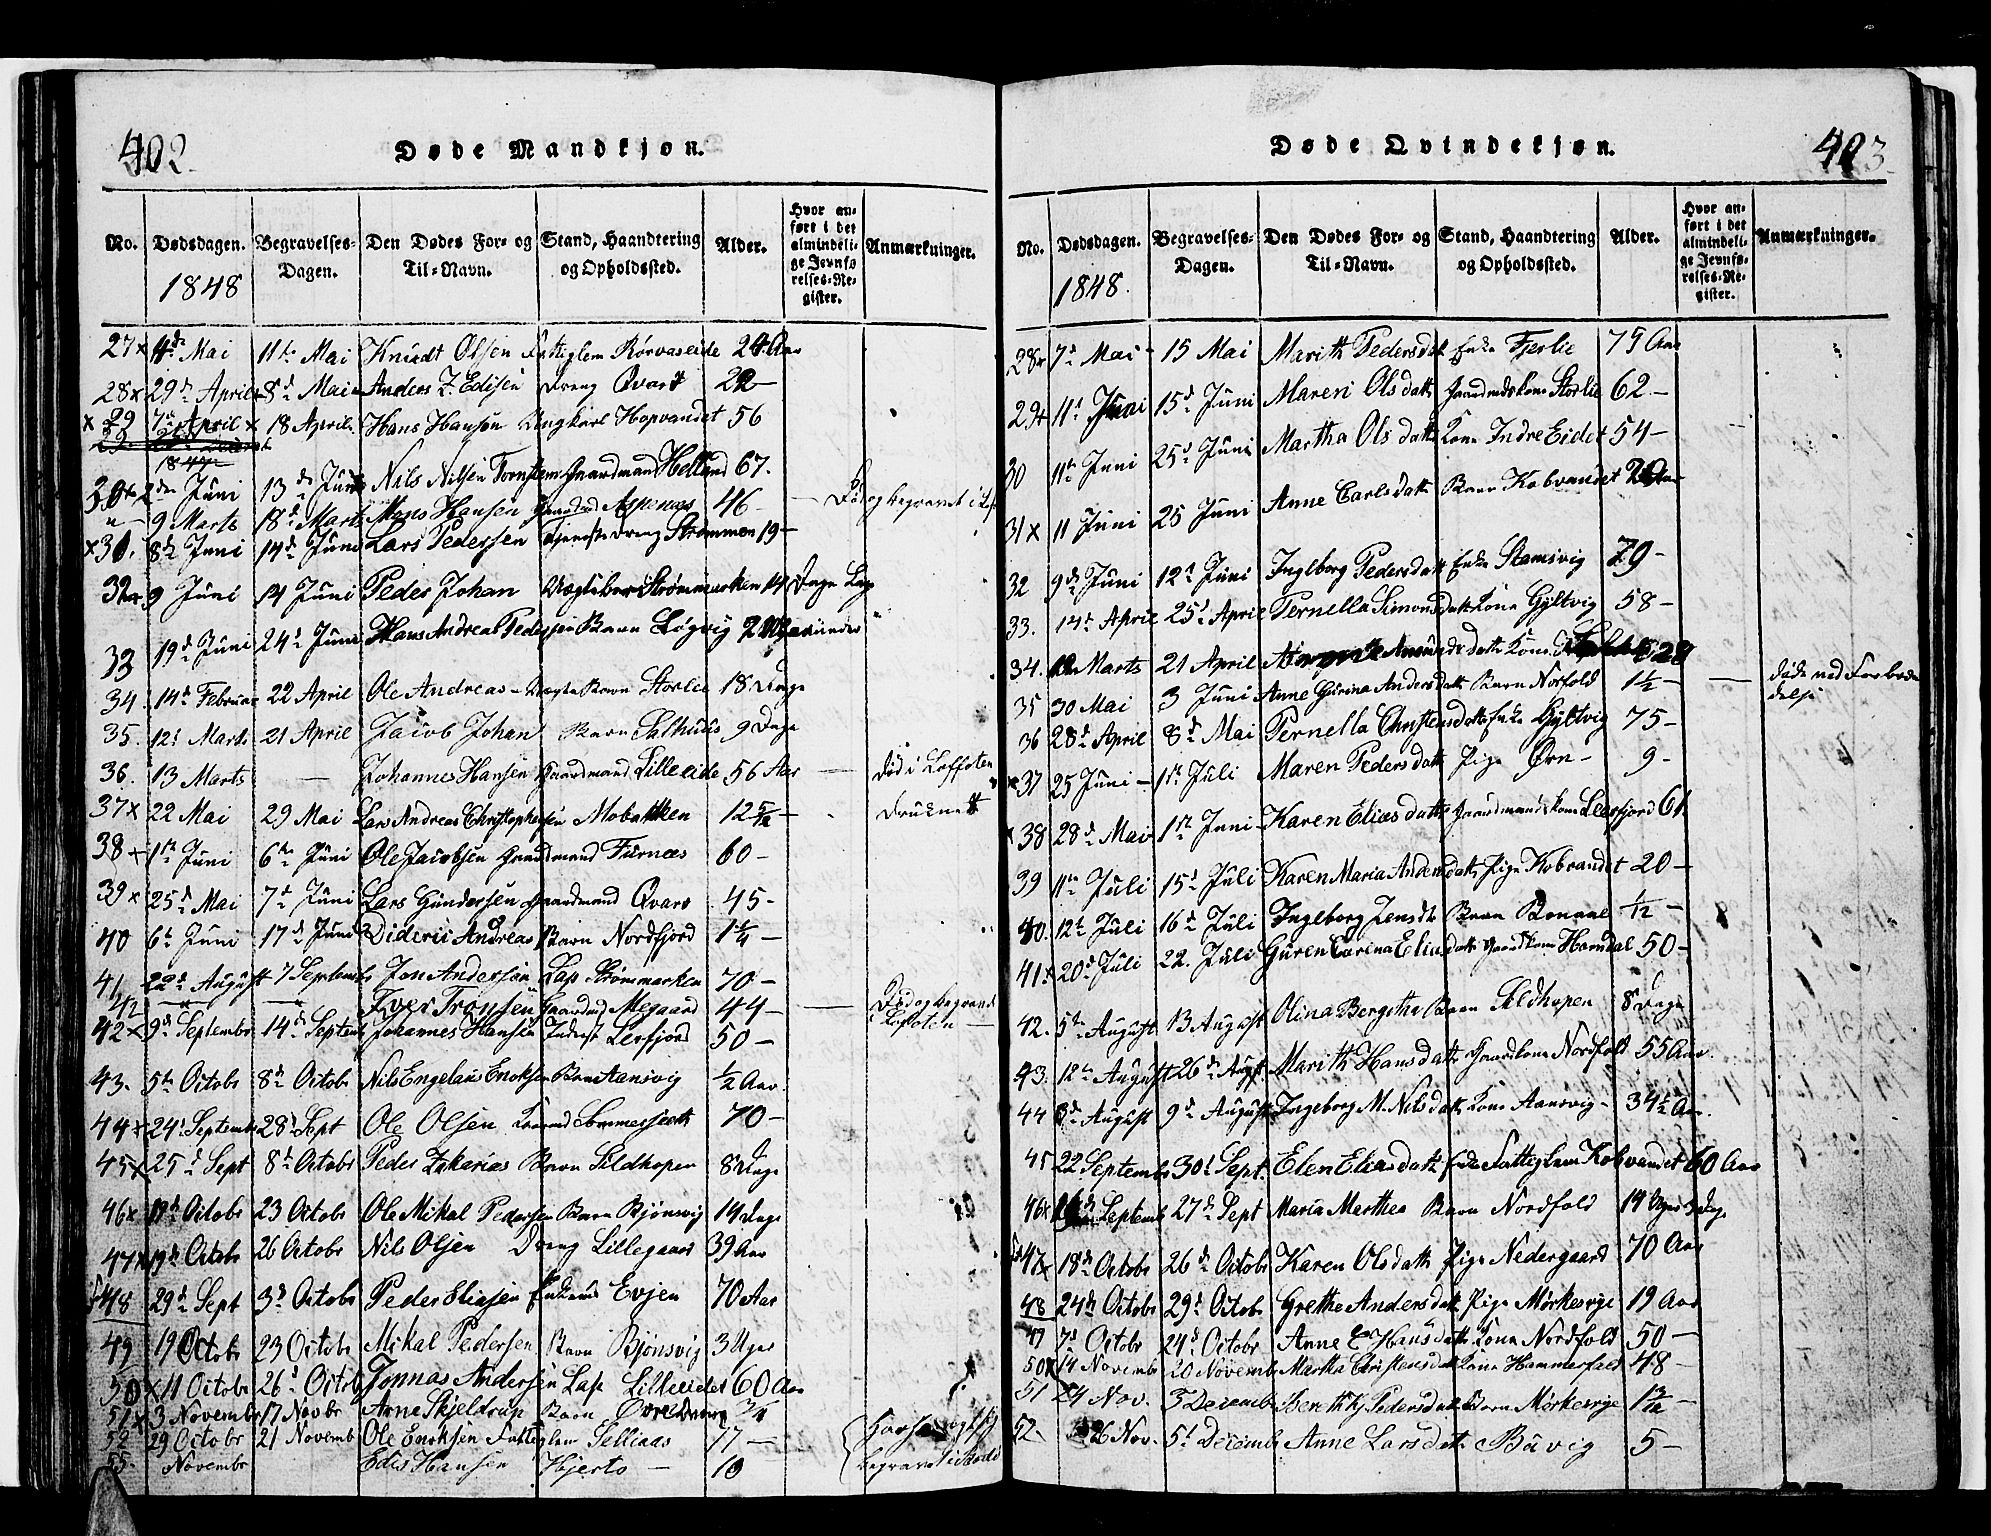 402.
Døde Mandkjøn.
No. Dødsdagen. Begravelses-Dagen. Den Dødes For- og Til-Navn. Stand, Haandtering og Opholdssted. Alder. Hvor anført i det almindelige Jevnførelses-Register. Anmærkninger.
1848
27 x 4de Mai 11te Mai Knudt Olsen Fattiglem Rørvaseide 24 Aar
28 x 29de April 8de Mai Anders Z. Edisen Dreng Qvarv 22 —
x 29 7de April x 18 April Hans Hansen Ungkarl Hopvandet 56
29.
1847
30 x 2den Juni 13de Juni Nils Nilsen Gaardmand Helland 67.
" 9 Marts 18de Marts Mons Hansen Gaardmd Aspenæs 46 — Død og begravet i Lof
x 31. 8de Juni 14de Juni Lars Pedersen Tjenestedreng Strømmen 19 —
32 9 Juni 14 Juni Peder Johan Uægte Barn Strømmarken 14 Dage Lap
33 19de Juni 24de Juni Hans Andreas Pedersen Barn Løgvig
34. 14de Februar 22 April Ole Andreas — Uægte Barn Storlie 18 Dage
35. 12te Marts 21 April Jacob Johan Barn Salhuus 9 Dage
36. 13 Marts — Johannes Hansen Gaardmand Lilleeide 56 Aar — Død i Loffoten
37 x 22 Mai 29 Mai Lars Andreas Christophersen Mobakken 12 5/12 — druknet
38 x 1ste Juni 6te Juni Ole Jacobsen Gaardmand Furnæs 60 —
39 x 25de Mai 7de Juni Lars Gundersen Gaardmand Qvarv 45 —
40 6te Juni 17de Juni Diderik Andreas Barn Nordfjord 1 1/4 —
41 22de August 7 Septembr Jon Andersen Lap Strømmarken 70 —
42 " " Iver Tronsen Gaardmd Megaard 44 — Død og begravet i Lofoten —
42 x 9de Septembr 14de Septemb Johannes Hansen Inderst Leefjord 50 —
43. 5te Octobr 8de Octobr Nils Engelaus Enoksen Barn Aansvig 1/2 Aar.
44 x 24de Septembr 28de Sept Ole Olsen Sommerseth 70 —
45 x 25de Sept 8de Octobr Peder Zakarias Barn Sildhopen 8 Dage
46 x 19de Octobr 23 Octobr Ole Mikal Pedersen Barn Bjönsvig 14 Dage
47 x 19de Octobr 26 Octobr Nils Olsen Dreng Lillegaard 39 Aar
48 29de Sept 3de Octobr Peder Eliasen Enkemd Evjen 70 Aar
49 19 Octobr 23 Octobr Mikal Pedersen Barn Bjönsvig 3 Uger
50 x 11 Octobr 26de Octobr Jonnas Andersen Lap Lilleeidet 60 Aar
51 x 3 Novembr 17 Novbr Arne Skjeldrup Barn
52 29 Octobr 21 Novemb Ole Enoksen Fattiglem Selliaas 77 —
53. Novembr Edis Hansen Hjerto — 10
403
Døde Qvindekjøn.
No. Dødsdagen. Begravelses-Dagen. Den Dødes For- og Til-Navn. Stand, Haandtering og Opholdssted. Alder. Hvor anført i det almindelige Jevnførelses-Register. Anmærkninger.
1848.
28 x 7de Mai 15 Mai Marith Pedersdatt Enke Fjerlie 79 Aar
29 x 11te Juni 15de Juni Maren Olsdatt Gaardmdskone Storlie 62 —
30 11te Juni 25de Juni Martha Olsdatt Kone Indre Eidet 54 —
31 x 11 Juni 25 Juni Anne Carlsdatt Barn Kobvandet
32 9de Juni 12te Juni Ingeborg Pedersdatt Enke Stamsvig 79 —
33. 14de April 25de April Pernella Simonsdatt Kone Gyltvig 58 —
34. Marts 21 April Kone 28
35 30 Mai 3 Juni Anne Gurina Andersdatt Barn Norfold 1 1/2 — døde ved Forbrændelse
36 28de April 8de Mai Pernella Christensdatt Enke Gyltvig 75 —
x 37 25 Juni — 1ste Juli Maren Pedersdatt Pige Örn — 9 —
x 38 28de Mai 1ste Juni Karen Eliasdatt Gaardmandskone Leerfjord 61
39 11te Juli 15de Juli Karen Maria Andersdatt Pige Kobvandet 20 —
40. 12te Juli 16de Juli Ingeborg Jensdt Barn Bonaae 1/12 —
41 x 20de Juli 22. Juli Guren Carina Eliasdatt Gaardkone Hamdal 50 —
42. 5te August 13 August Olina Bergitha Barn Sildhopen 8 Dage
43. 12te August 26de Augst. Marith Hansdatt Gaardkone Nordfold 55 Aar.
44 3de August 9de August Ingeborg M. Nilsdatt Kone Aansvig — 34 1/2 Aar.
45 22 Septembr 30te Sept. Elen Eliasdatt Enke Fattiglem Kobvandet 60 Aar
46 x Septemb 27de Sept Maria Marthea Barn Nordfold 14 Uger 3 Dage
47 x 18de Octobr 26de Octobr Karen Olsdatt Pige Nedergaard 70 Aar
48 24de Octobr 29de Octobr Grethe Andersdatt Pige Mørkesvig 19 Aar
49 7de Octobr 24de Octobr Anne E Hansdatt Kone Nordfold 50 —
50 x 14 Novembr 20 Novembr Martha Christensdatt Kone Hammerfald 48 —
51 24 Nov. 3 Decemb Berith Kj Pedersdatt Barn Mørkesvig
52. 26 Nov. 5te Decemb Anne Larsdatt Båvig 5 —